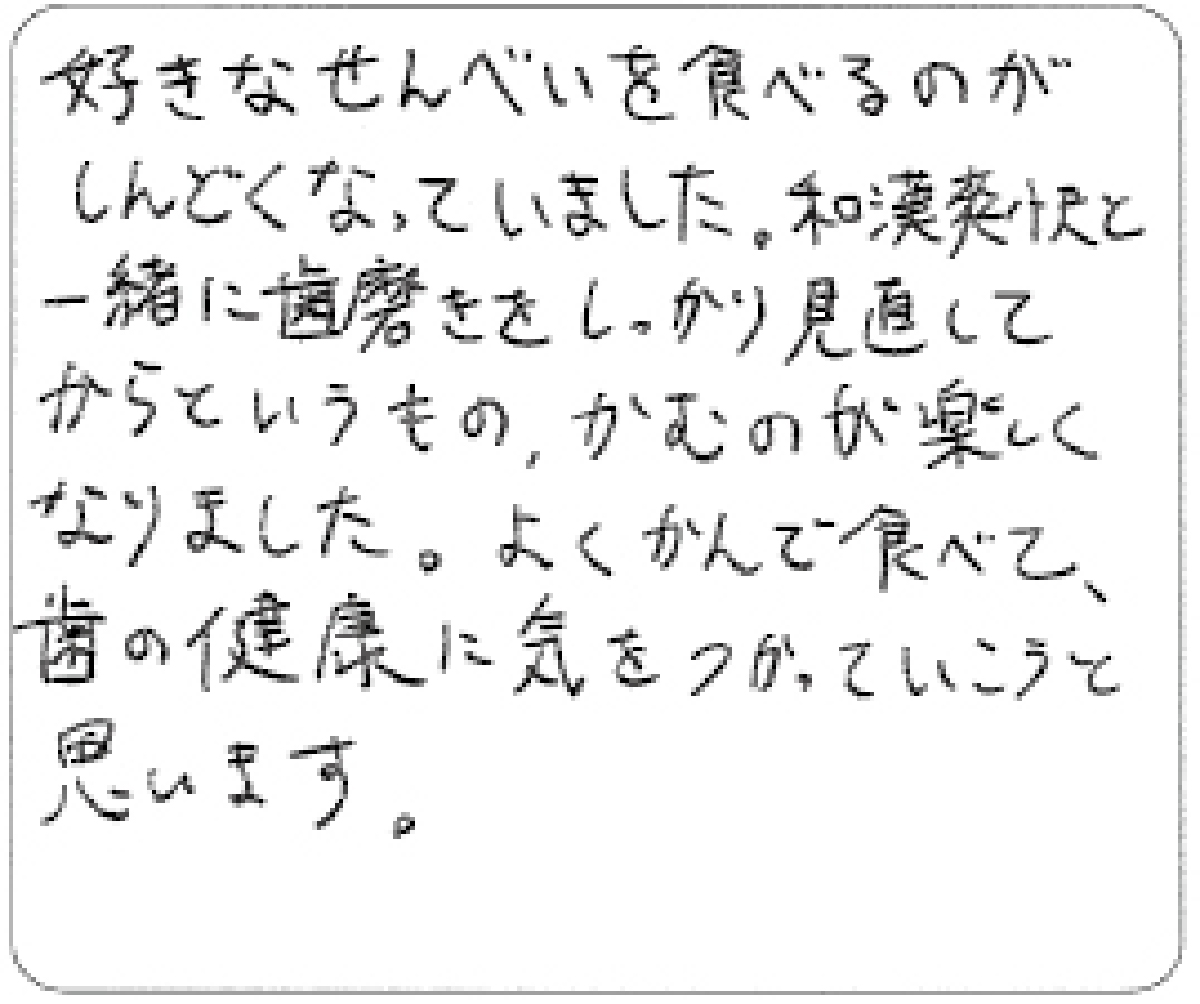 好きなせんべいを食べるのが
しんどくなっていました。和漢爽快と
一緒に歯磨きをしっかり見直して
からというもの,かむのが楽しく
なりました。よくかんで食べて、
歯の健康に気をつかっていこうと
思います。